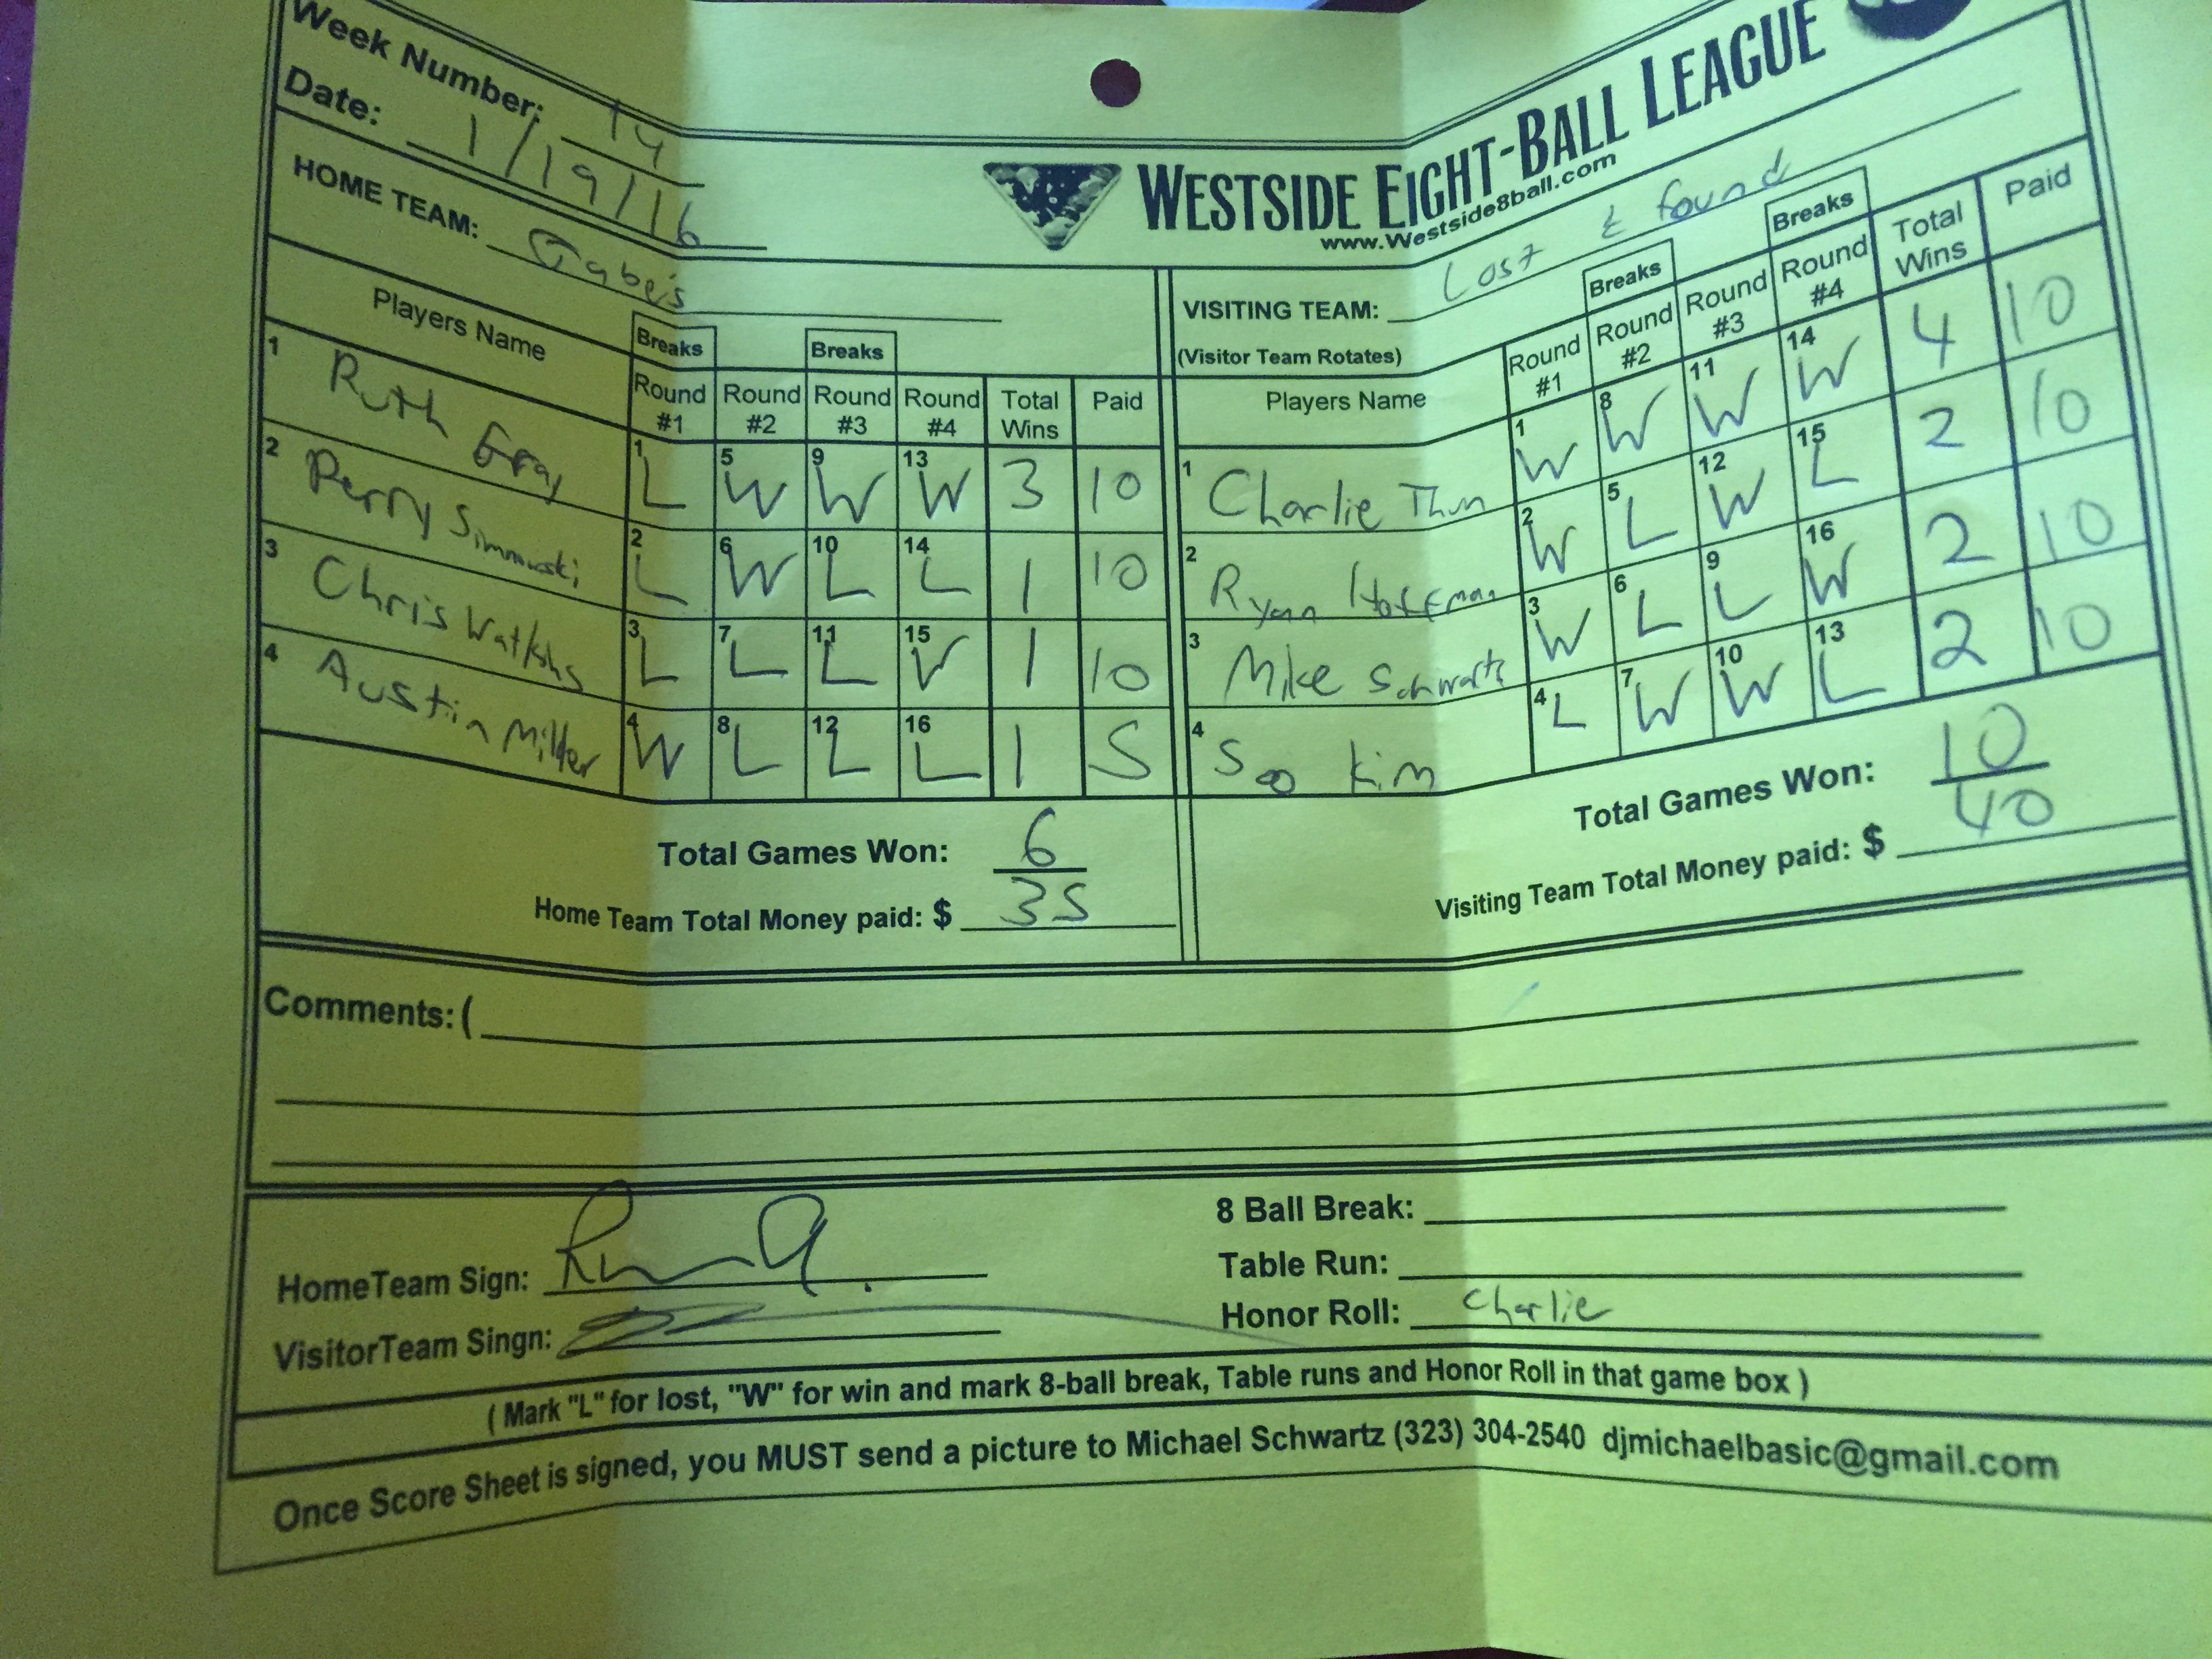 Week Number: 14
Date: 1/19/16
WESTSIDE EIGHT-BALL LEAGUE
www.Westside8ball.com
HOME TEAM: Gabe's
VISITING TEAM: Lost & Found
(Visitor Team Rotates)
Players Name Breaks Round #1 Round #2 Breaks Round #3 Round #4 Total Wins Paid
1 Ruth Gray 1 L 5 W 9 W 13 W 3 10
2 Perry 2 L 6 W 10 L 14 L 1 10
3 Chris Watkins 3 L 7 L 11 L 15 W 1 10
4 Austin Miller 4 W 8 L 12 L 16 L 1 5
Total Games Won: 6
Home Team Total Money paid: $ 35
Players Name Round #1 Breaks Round #2 Round #3 Breaks Round #4 Total Wins Paid
1 Charlie 1 W 8 W 11 W 14 W 4 10
2 Ryan Hoffman 2 W 5 L 12 W 15 L 2 10
3 Mike Schwartz 3 W 6 L 9 L 16 W 2 10
4 Soo Kim 4 L 7 W 10 W 13 L 2 10
Total Games Won: 10
Visiting Team Total Money paid: $ 40
Comments: (
HomeTeam Sign:
VisitorTeam Singn:
8 Ball Break:
Table Run:
Honor Roll: Charlie
( Mark "L" for lost, "W" for win and mark 8-ball break, Table runs and Honor Roll in that game box )
Once Score Sheet is signed, you MUST send a picture to Michael Schwartz (323) 304-2540 djmichaelbasic@gmail.com